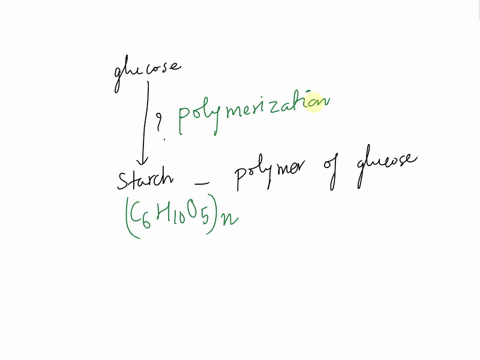 glucose
? polymerization
Starch - polymer of glucose
(C6H10O5)n